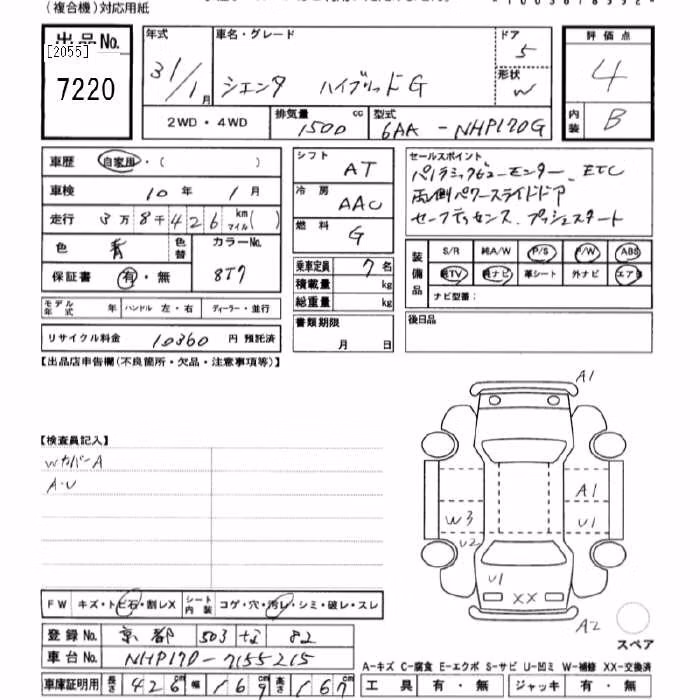 (複合機)対応用紙
出品No. [2055] 7220
年式 31/1月
車名・グレード シエンタ ハイブリッドG
ドア 5
形状 W
評価点 4
内装 B
2WD・4WD
排気量 1500 cc
型式 6AA-NHP170G
車歴 自家用・( )
車検 10年 1月
走行 3万8千426 km マイル( )
色 青 色替 カラーNo. 8T7
保証書 有・無
モデル年式 年 ハンドル 左・右 ディーラー・並行
リサイクル料金 10360 円 預託済
シフト AT
冷房 AAC
燃料 G
乗車定員 7名
積載量 kg
総重量 kg
書類期限 月 日
セールスポイント
パノラミックビューモニター、ETC
両側パワースライドドア
セーフティセンス、プッシュスタート
装備品 S/R 純A/W P/S P/W ABS
純TV 純ナビ 革シート 外ナビ エアB
ナビ型番:
後日品
【出品店申告欄(不良箇所・欠品・注意事項等)】
【検査員記入】
WカバーA
A・U
A1
A1
W3 U1
U2
U1
XX
A2
スペア
FW キズ・トビ石・割レX シート内装 コゲ・穴・汚レ・シミ・破レ・スレ
登録No. 京都 503 な 82
車台No. NHP170-7155215
車庫証明用 長さ 426cm 幅 169cm 高さ 167cm
A-キズ C-腐食 E-エクボ S-サビ U-凹ミ W-補修 XX-交換済
工具 有・無 ジャッキ 有・無